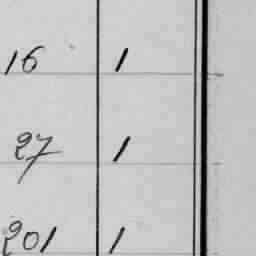 16 1
27 1
201 1